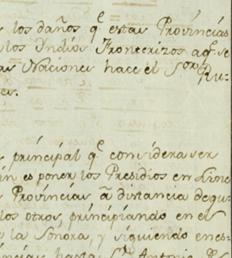 los daños q.e estas Provincias
los Indios Fronterizos aq.e se
as Naciones hace el S.or D.n Ru-
principal q.e considera ser
es poner los Presidios en Line
Provincias a distancia de qu
los otros, principiando en el
la Sonora, y siguiendo en es
hasta S.n Antonio